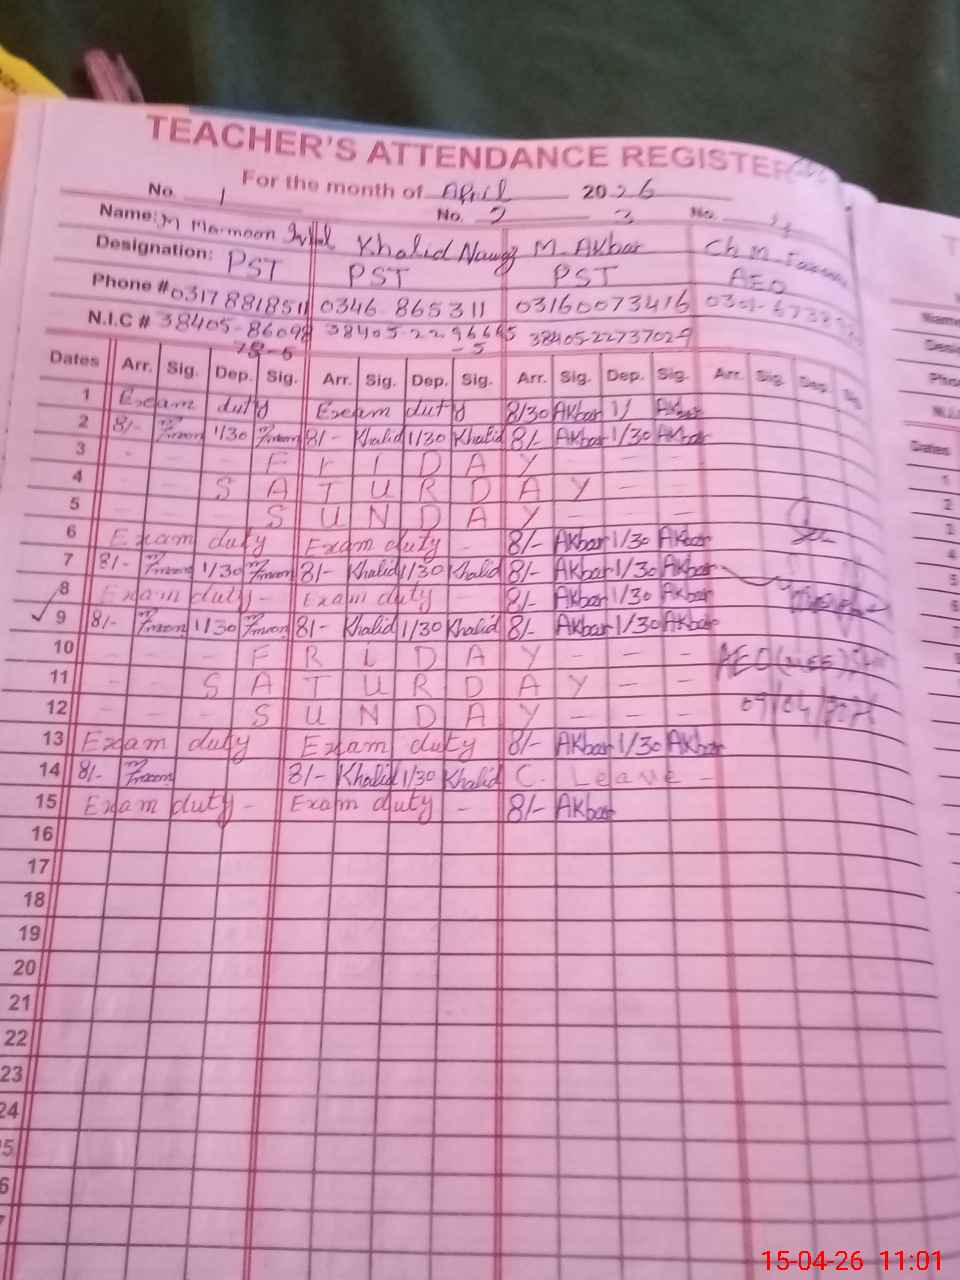 TEACHER'S ATTENDANCE REGISTER
For the month of April 2026
No. 1 No. 2 3 No.
Name: M Mamoon Khalid Nawaz M. Akbar Ch M.
Designation: PST PST PST AEO
Phone # 03178818511 0346 865311 03160073416 0301-
N.I.C # 38405-86098 38405-22 38405-2273702-9
78-5 -5
Dates Arr. Sig. Dep. Sig. Arr. Sig. Dep. Sig. Arr. Sig. Dep. Sig. Arr. Sig. Dep. Sig.
1 Exam duty Exam duty 8/30 Akbar 1/ Akbar
2 8/- 1/30 8/- Khalid 1/30 Khalid 8/- Akbar 1/30 Akbar
3 - F r i D A Y - - -
4 - - S A T U R D A Y - -
5 - - - S U N D A Y - - -
6 Exam duty Exam duty - 8/- Akbar 1/30 Akbar
7 8/- 1/30 8/- Khalid 1/30 Khalid 8/- Akbar 1/30 Akbar
8 Exam duty - Exam duty - 8/- Akbar 1/30 Akbar
9 8/- 1/30 8/- Khalid 1/30 Khalid 8/- Akbar 1/30 Akbar
10 - - - F R I D A Y - - - AEO (MEE)
11 - - S A T U R D A Y - -
12 - - - S U N D A Y - - - 09/04/2026
13 Exam duty Exam duty 8/- Akbar 1/30 Akbar
14 8/- 8/- Khalid 1/30 Khalid C. Leave -
15 Exam duty - Exam duty - 8/- Akbar
16
17
18
19
20
21
22
23
24
5
6
Dates
1
2
15-04-26 11:01